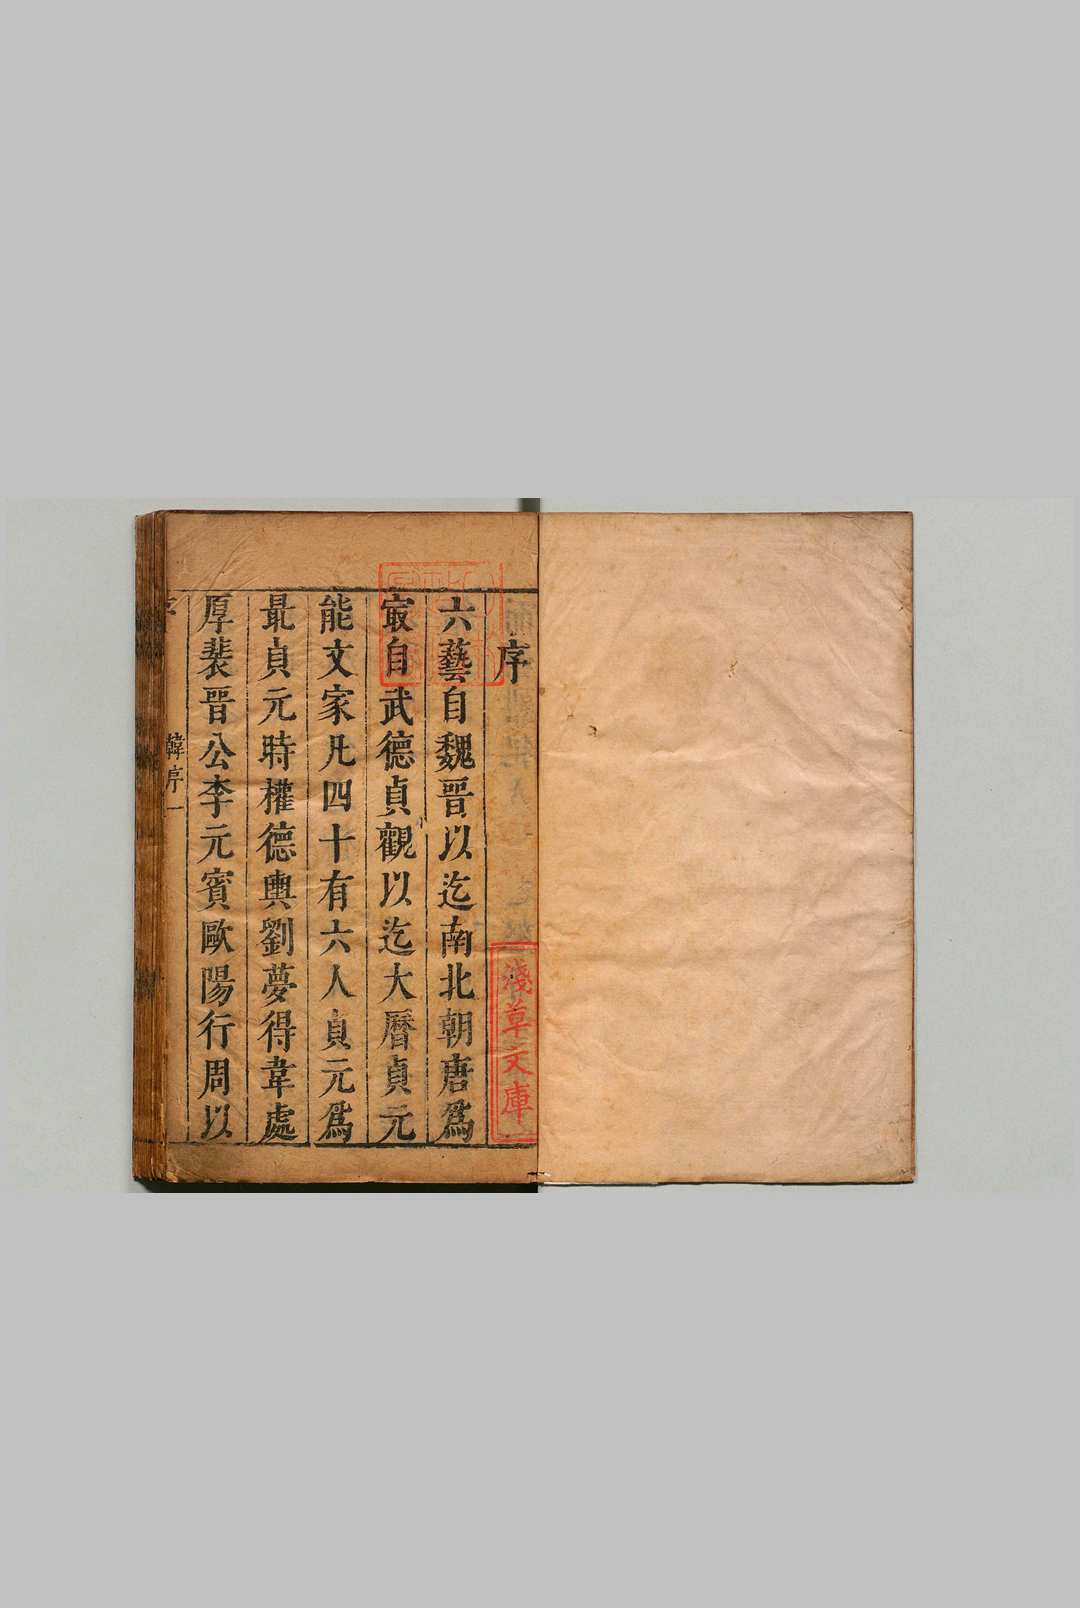 序
六藝自魏晋以迄南北朝唐爲
㝡自武德貞觀以迄大曆貞元
能文家凡四十有六人貞元爲
最貞元時權德輿劉夢得韋處
厚裴晋公李元賓歐陽行周以
韓序一
淺草文庫